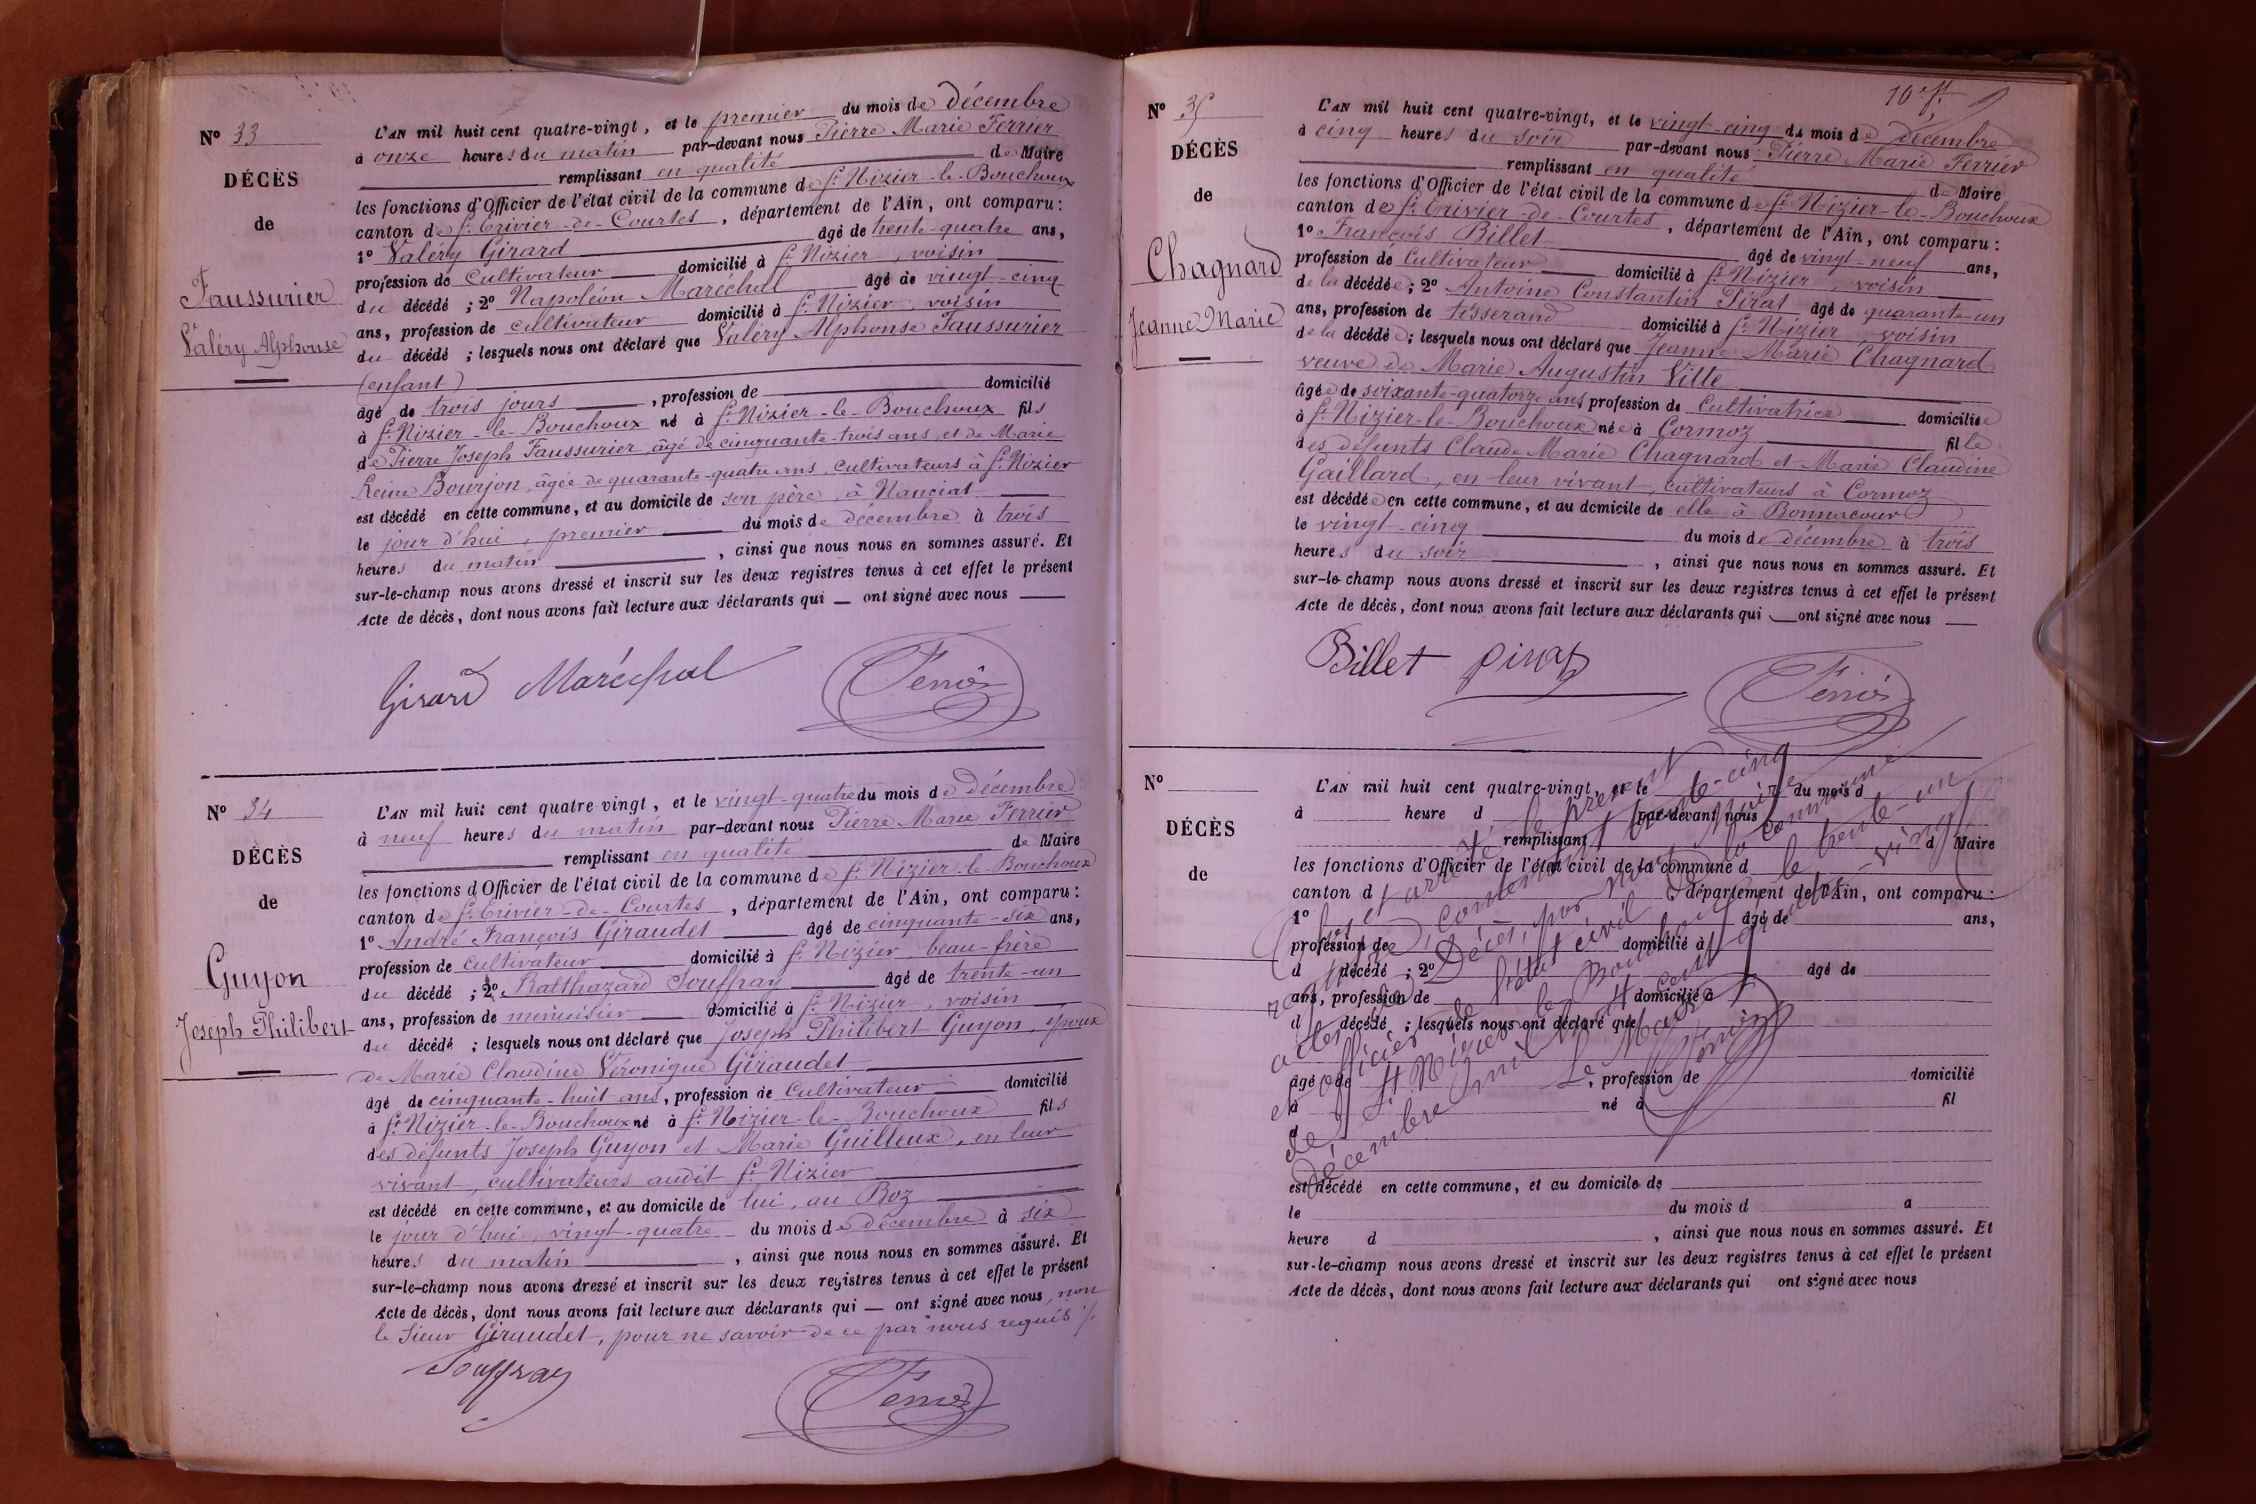 N° 33
DÉCÈS
de
Faussurier
Valéry Alphonse
L'AN mil huit cent quatre-vingt, et le premier du mois de décembre
à onze heures du matin par-devant nous Pierre Marie Ferrier
remplissant en qualité de Maire
les fonctions d'Officier de l'état civil de la commune de St Nizier-le-Bouchoux
canton de St Trivier-de-Courtes, département de l'Ain, ont comparu :
1° Valéry Girard âgé de trente-quatre ans,
profession de Cultivateur domicilié à St Nizier, voisin
du décédé ; 2° Napoléon Maréchal âgé de vingt-cinq
ans, profession de cultivateur domicilié à St Nizier, voisin
du décédé ; lesquels nous ont déclaré que Valéry Alphonse Faussurier
(enfant)
âgé de trois jours, profession de domicilié
à St Nizier-le-Bouchoux né à St Nizier-le-Bouchoux fils
de Pierre Joseph Faussurier, âgé de cinquante-trois ans, et de Marie
Reine Bourjon, âgée de quarante-quatre ans, cultivateurs à St Nizier
est décédé en cette commune, et au domicile de son père, à Nanciat
le jour d'hui, premier du mois de décembre à trois
heures du matin, ainsi que nous nous en sommes assuré. Et
sur-le-champ nous avons dressé et inscrit sur les deux registres tenus à cet effet le présent
Acte de décès, dont nous avons fait lecture aux déclarants qui ont signé avec nous
Girard Maréchal Ferrier
N° 34
DÉCÈS
de
Guyon
Joseph Philibert
L'AN mil huit cent quatre-vingt, et le vingt-quatre du mois de décembre
à neuf heures du matin par-devant nous Pierre Marie Ferrier
remplissant en qualité de Maire
les fonctions d'Officier de l'état civil de la commune de St Nizier-le-Bouchoux
canton de St Trivier-de-Courtes, département de l'Ain, ont comparu :
1° André François Giraudet âgé de cinquante-six ans,
profession de cultivateur domicilié à St Nizier, beau-frère
du décédé ; 2° Balthazard Souffray âgé de trente-un
ans, profession de menuisier domicilié à St Nizier, voisin
du décédé ; lesquels nous ont déclaré que Joseph Philibert Guyon, époux
de Marie Claudine Véronique Giraudet
âgé de cinquante-huit ans, profession de Cultivateur domicilié
à St Nizier-le-Bouchoux né à St Nizier-le-Bouchoux fils
des défunts Joseph Guyon et Marie Guilleux, en leur
vivant, cultivateurs audit St Nizier
est décédé en cette commune, et au domicile de lui, au Boz
le jour d'hui, vingt-quatre du mois de décembre à six
heures du matin, ainsi que nous nous en sommes assuré. Et
sur-le-champ nous avons dressé et inscrit sur les deux registres tenus à cet effet le présent
Acte de décès, dont nous avons fait lecture aux déclarants qui ont signé avec nous, non
le Sieur Giraudet, pour ne savoir de ce par nous requis
Souffray Ferrier
N° 35
DÉCÈS
de
Chagnard
Jeanne Marie
L'AN mil huit cent quatre-vingt, et le vingt-cinq du mois de décembre
à cinq heures du soir par-devant nous Pierre Marie Ferrier
remplissant en qualité de Maire
les fonctions d'Officier de l'état civil de la commune de St Nizier-le-Bouchoux
canton de St Trivier-de-Courtes, département de l'Ain, ont comparu :
1° François Billet âgé de vingt-neuf ans,
profession de Cultivateur domicilié à St Nizier, voisin
de la décédée ; 2° Antoine Constantin Pirat âgé de quarante-un
ans, profession de tisserand domicilié à St Nizier voisin
de la décédée ; lesquels nous ont déclaré que Jeanne Marie Chagnard
veuve de Marie Augustin Ville
âgée de soixante-quatorze ans profession de Cultivatrice domiciliée
à St Nizier-le-Bouchoux née à Cormoz fille
des défunts Claude Marie Chagnard et Marie Claudine
Gaillard, en leur vivant, cultivateurs à Cormoz
est décédée en cette commune, et au domicile de elle à Bonnacour
le vingt-cinq du mois de décembre à trois
heures du soir, ainsi que nous nous en sommes assuré. Et
sur-le-champ nous avons dressé et inscrit sur les deux registres tenus à cet effet le présent
Acte de décès, dont nous avons fait lecture aux déclarants qui ont signé avec nous
Billet Pirat Ferrier
N°
DÉCÈS
de
L'AN mil huit cent quatre-vingt, et le du mois d
à heure d par-devant nous
remplissant d Maire
les fonctions d'Officier de l'état civil de la commune d
canton d département de l'Ain, ont comparu :
1° âgé de ans,
profession de domicilié à
d décédé ; 2° âgé de
ans, profession de domicilié à
d décédé ; lesquels nous ont déclaré que
âgé de, profession de domicilié
à né à fil
d
est décédé en cette commune, et au domicile de
le du mois d à
heure d, ainsi que nous nous en sommes assuré. Et
sur-le-champ nous avons dressé et inscrit sur les deux registres tenus à cet effet le présent
Acte de décès, dont nous avons fait lecture aux déclarants qui ont signé avec nous
Clos et arrêté le présent
registre, contenant trente-cinq
actes de Décès, par nous Maire
et officier de l'état civil de la commune
de St Nizier-le-Bouchoux le trente-un
décembre mil huit cent quatre-vingt
Le Maire
Ferrier